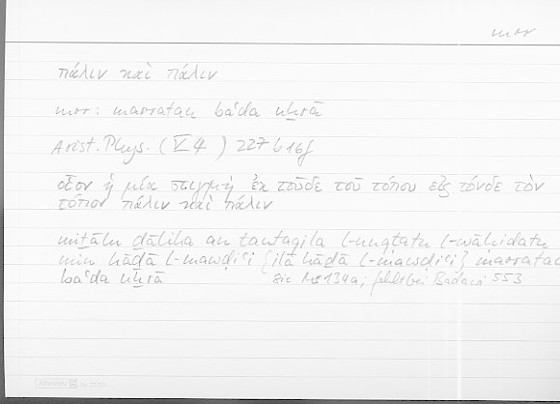 mrr
πάλιν καὶ πάλιν
mrr: marratan baʿda uḫrā
Arist. Phys. (V 4) 227 b 16f
οἷον ἡ μία στιγμὴ ἐκ τοῦδε τοῦ τόπου εἰς τόνδε τὸν
τόπον πάλιν καὶ πάλιν
miṯālu ḏālika an tantaqila l-nuqṭatu l-wāḥidatu
min hāḏā l-mawḍiʿi {ilā hāḏā l-mawḍiʿi} marratan
baʿda uḫrā sic Ms 134a; fehlt bei Badawi 553